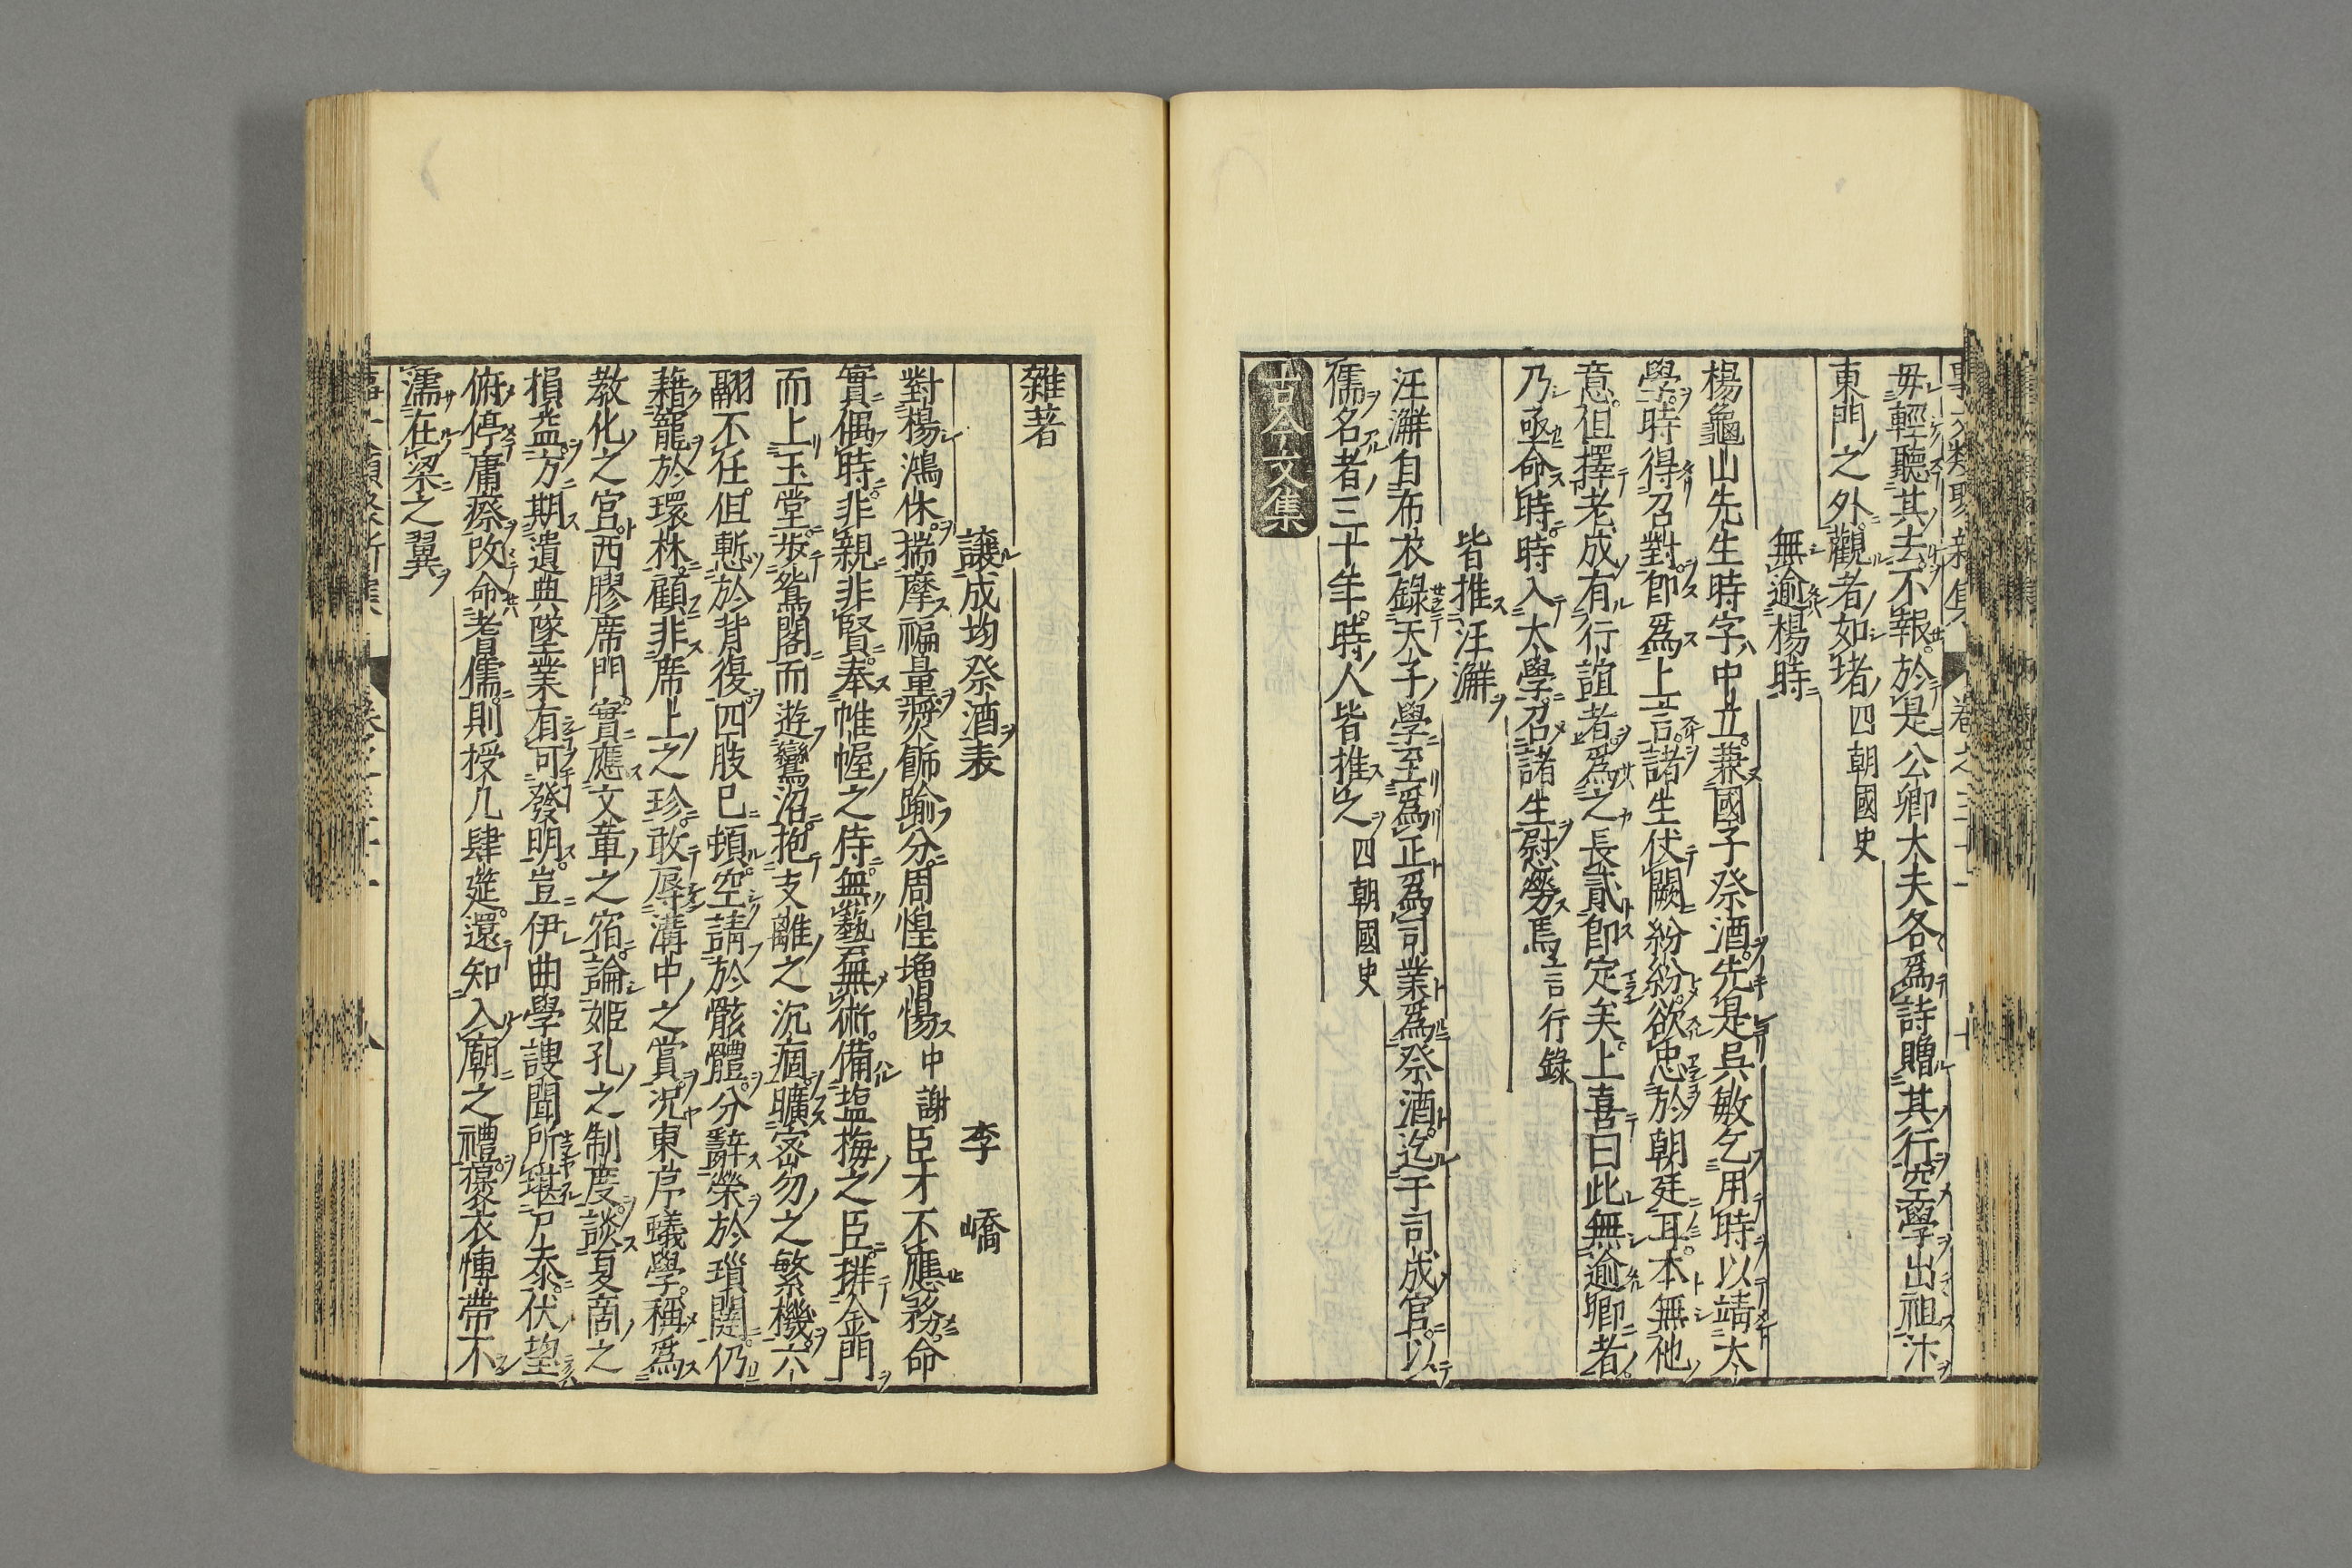 毋輕聽其去不報於是公卿大夫各爲詩贈其行空學出祖汴
東門之外觀者如堵四朝國史
無逾楊時
楊龜山先生時字中立兼國子祭酒先是吳敏乞用時以靖太
學時得召對卽爲上言諸生伏闕紛紛欲忠於朝廷耳本無他
意但擇老成有行誼者爲之長貳卽定矣上喜曰此無逾卿者
乃亟命時時入太學召諸生慰勞焉言行錄
皆推汪澥
汪澥自布衣錄天子學至爲正爲司業爲祭酒迄于司成官以
儒名者三十年時人皆推之四朝國史
古今文集
雜著
讓成均祭酒表 李嶠
對楊鴻休揣摩褊量奬飾踰分周惶増惕中謝臣才不應務命
實偶時非親非賢奉帷幄之侍無藝無術備塩梅之臣排金門
而上玉堂步鴛閣而遊鸞沼抱支離之沉痼曠密勿之繁機六
翮不任但慙於背復四肢已頓空請於骸體分辭榮於瑣闥仍
藉寵於環林顧非席上之珍敢辱溝中之賞況東序蟻學稱爲
教化之宮西膠席門實應文章之宿論姬孔之制度談夏商之
損益方期遺典墜業有可發明豈伊曲學謏聞所堪尸忝伏望
俯停庸瘵改命耆儒則授几肆筵還知入廟之禮褒衣博帶不
濡在梁之翼